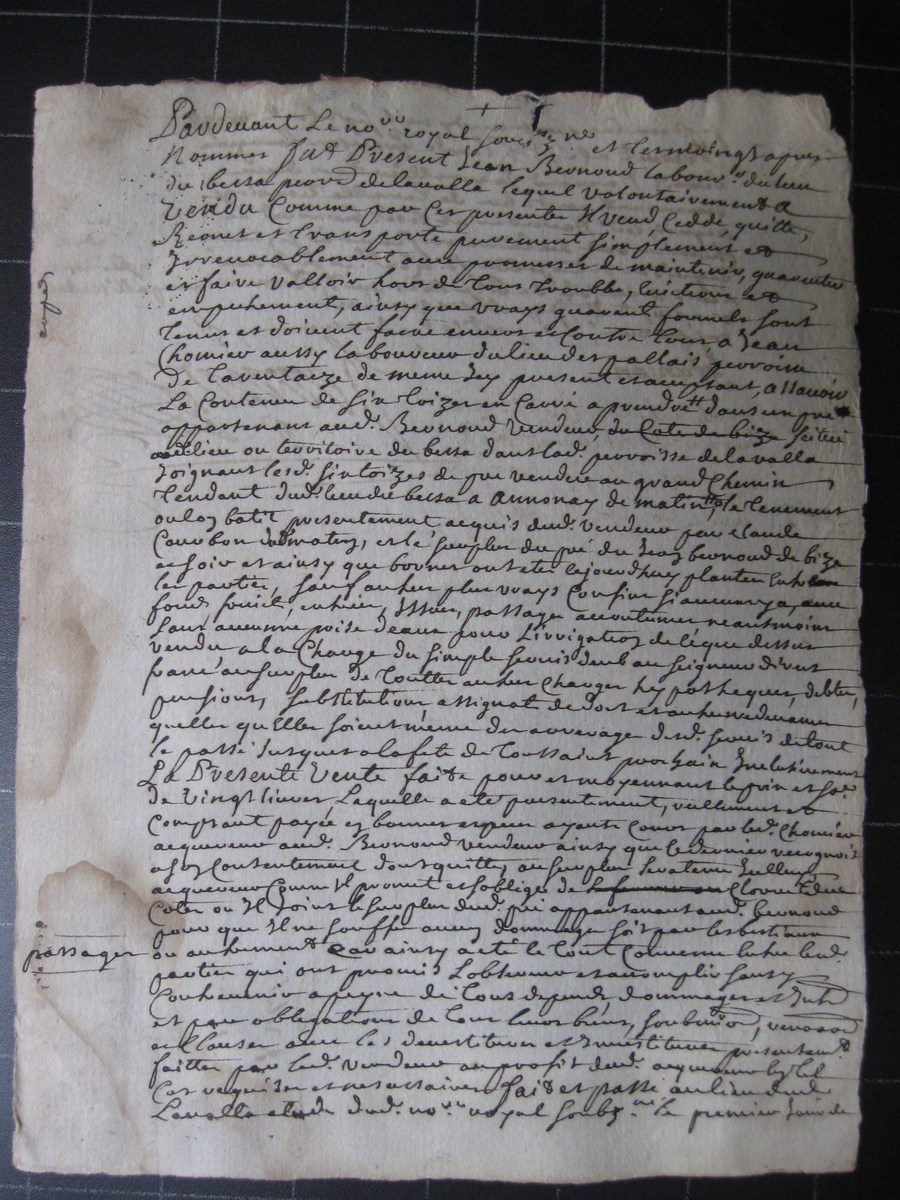 Pardevant Le no.re royal soubz.ne et les temoingt apres
Nommes fut Present Jean Beronod labour.r du lieu
du bessa par.sse de lavalla lequel volontairement a
vendu Comme par Ces presente Il vend, Cedde, quitte,
Remet et transporte purement simplement et
Irrevocablement avec promesses de maintenir, guarentir
et faire valloir hors de tous troubbe, evictions et
empechement, ainsy que vrays guarent formels sont
tenus et doivent faire envers et Contre tous, a Jean
Chomier aussy laboureur du lieu des pallais, parroisse
De Lavental de meme Icy present et acceptant, a scavoir
La Contenue de six toizes en Carré a prendre dans un pré
appartenant aud. Beronod vendeur, du Coté de bize scitué
aud lieu ou territoire du bessa dans lad. parroisse de lavalla
Joignant lesd. six toizes de pré vendu au grand Chemin
tendant dud. lieu du bessa a Annonay de matin, le tenement
presentement acquis dud. vendeur par claude
Courbon de matin, et le surplus du pré du Jean beronod de bize
et soir et ainsy que bornes ont eté cejourdhuy plantées entre
les parties, sauf autres plus vrays Confins si aucuns y a, avec
fonds, entrées, Issues, passages accoutumes neantmoins
sans aucune prise d'eau pour L'irrigation de ce que dessus
vendu a la Charge du simple servis deub au seigneur direct
franc au surplus de touttes autres Charges hypotheques, debtes,
pensions, substitutions assignat de dot et autres redevances
quelles qu'elles soient meme des arrerage desd. servis de tout
le passé Jusques a la fete de toussaint prochain Inclusivement
La Presente Vente faite pour et moyennant le prix et so.e
De vingt livres Laquelle a eté presentement, reellement et
Comptant payée en bonnes especes ayants Cours par led. Chomier
acquereur aud. Beronod vendeur ainsy que ce dernier recognoit
a son Contentement dont quitte, au surplus
acquereur Comme Il promet et s'oblige de Clorre
Cotes ou Il Joint le surplus dud. pré appartenant aud. beronod
pour que Il ne souffre aucun dommage soit par les bestiaux
ou autrement Car ainsy a eté le tout Convenu entre les d.
parties qui ont promis L'observer et accomplir sans y
Contrevenir a peyne de tous depends dommages et Int.
et par obligations de tous leurs biens, soubmions, renonon
et Clauses avec les devestitures et Investitures presentem.t
faittes par led. vendeur au profit dud. acquereur
Cas requises et necessaires fait et passé au lieu de
Lavalla etude dud. no.re royal soubz.né le premier Jour de
passages